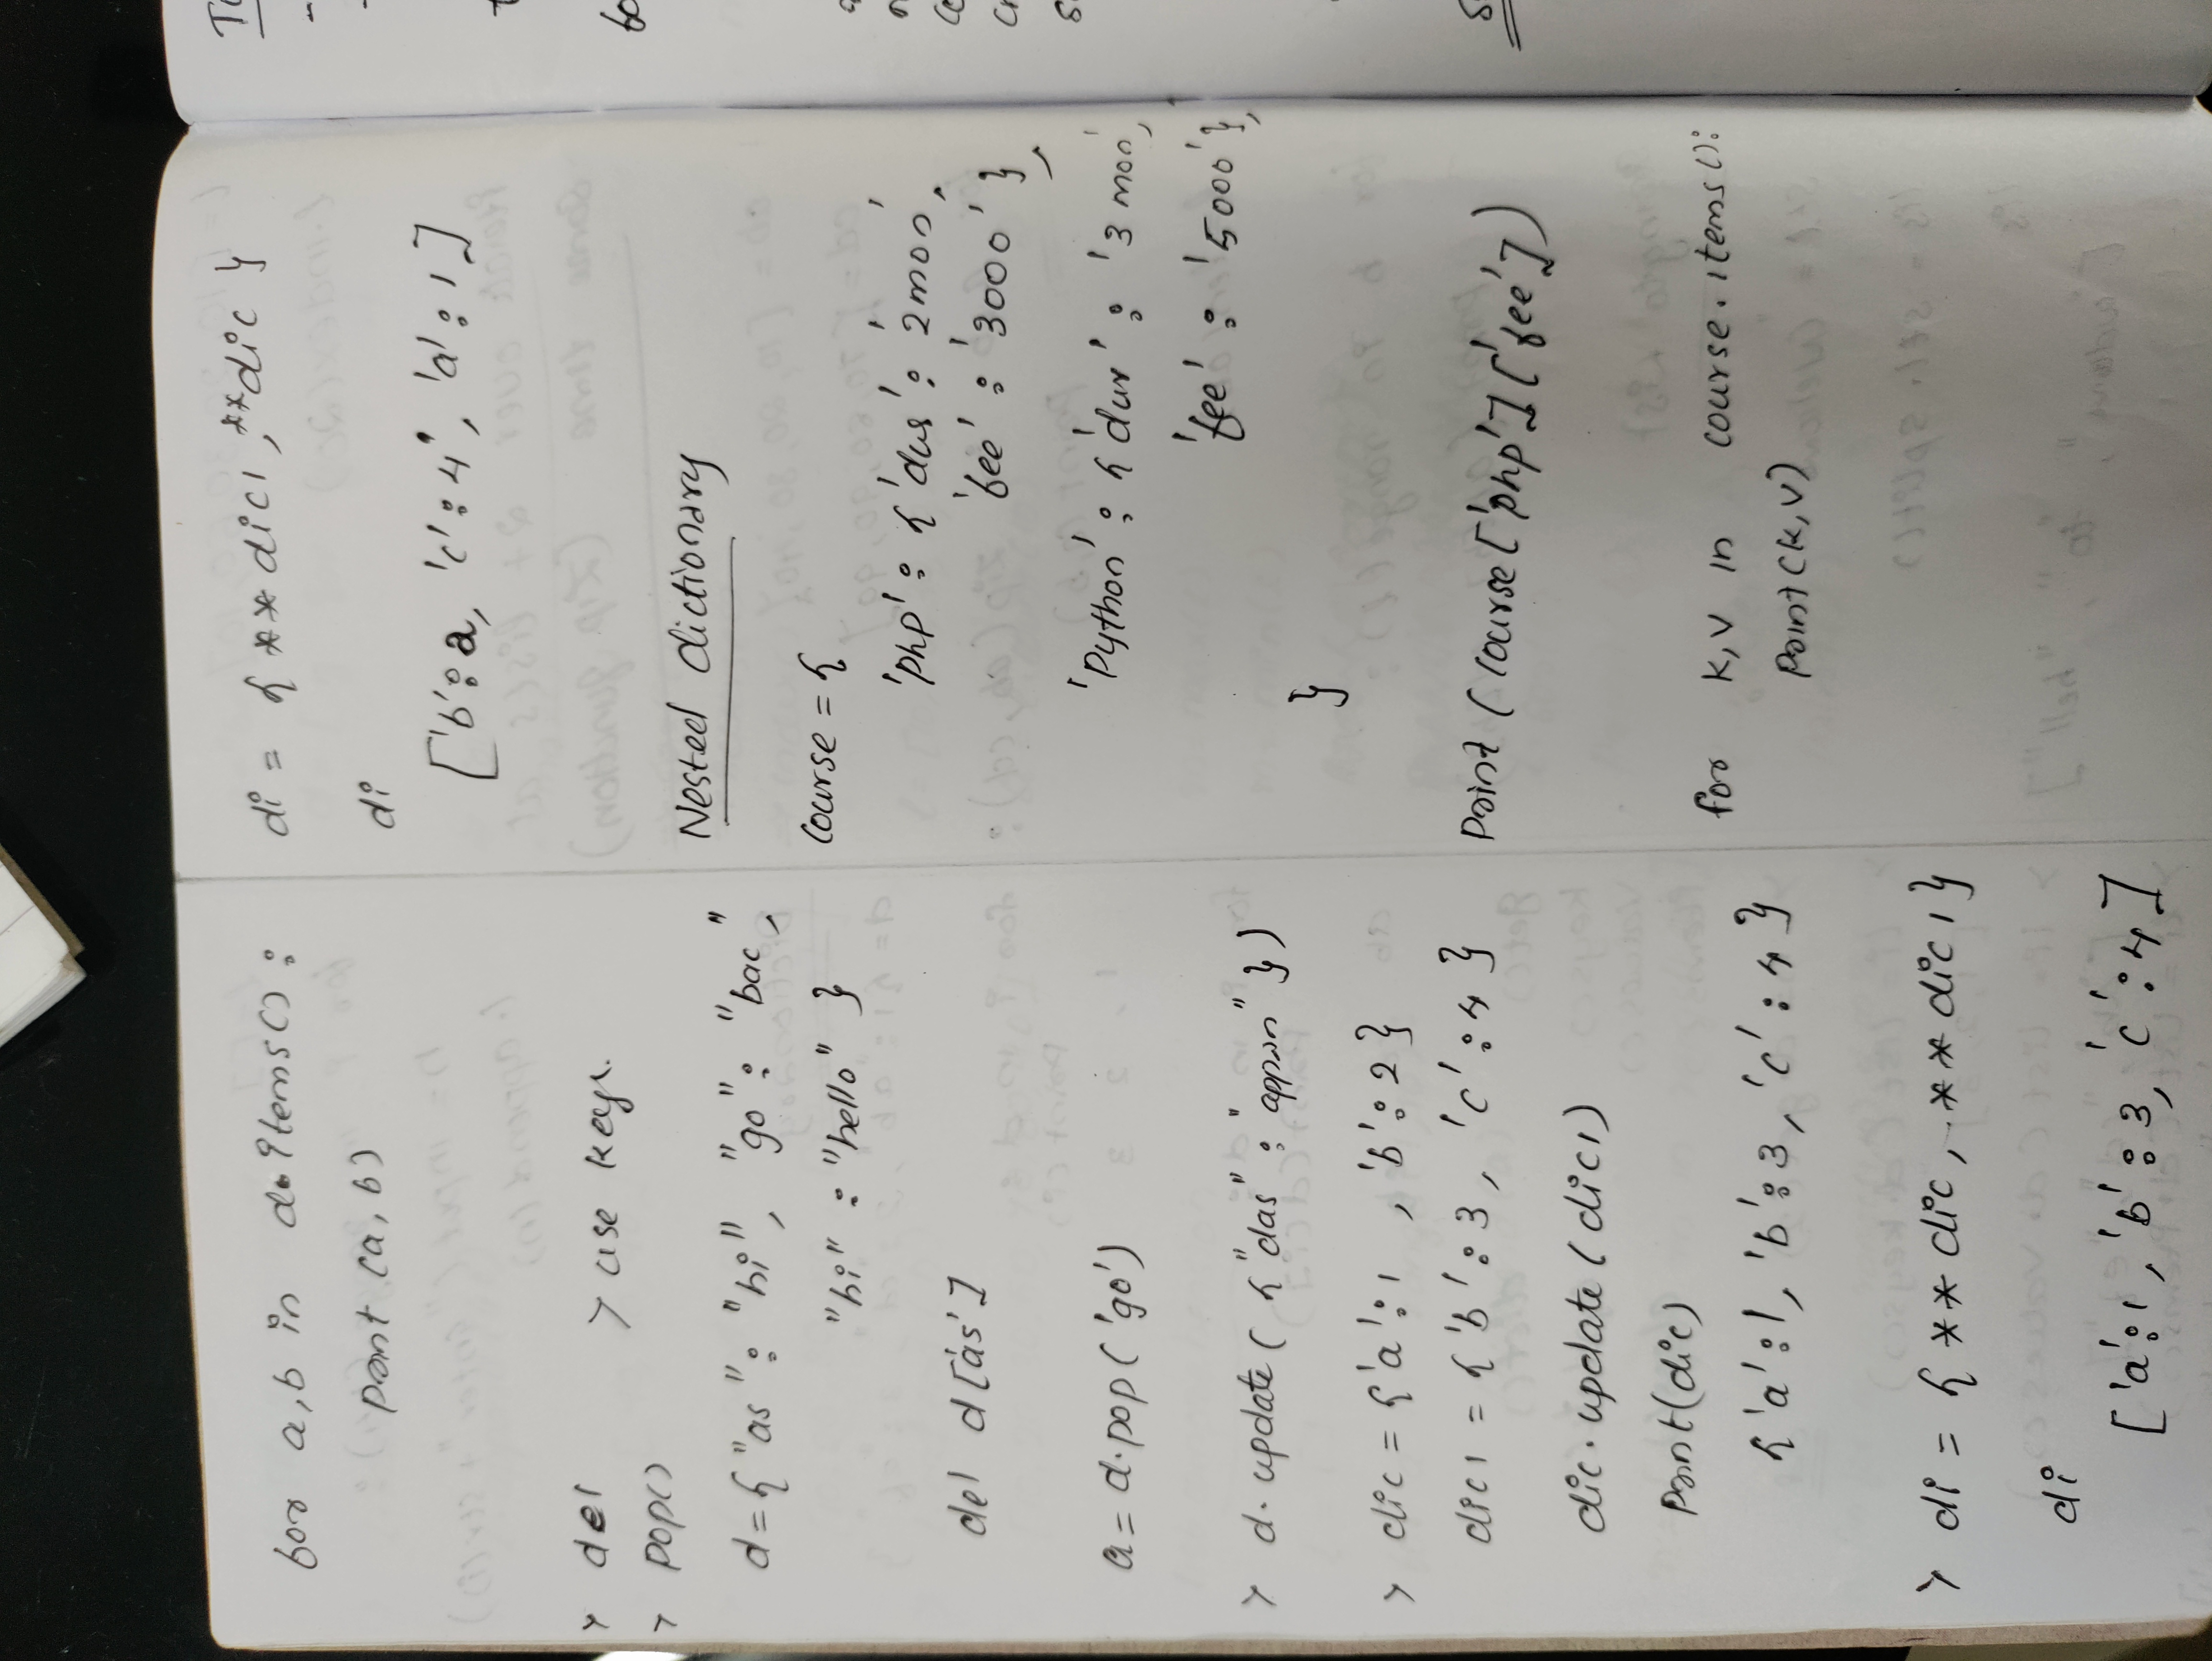 for a,b in d.items():
print (a, b)
> del > use keys.
> pop()
d={"as": "hi", "go": "bac",
"hi" : "hello" }
del d['as']
a= d.pop('go')
> d.update( {"das": "appan" })
> dic = {'a':1 , 'b':2}
dic1 = {'b':3, 'c':4}
dic.update(dic1)
Print(dic)
{'a':1, 'b':3, 'c':4}
> di = {** dic, ** dic1}
di
['a':1, 'b':3, 'c':4]
di = {** dic1, **dic }
di
['b':2, 'c':4, 'a':1]
Nested dictionary
course = {
'php': {'dur': '2mon',
'fee' : '3000' },
'Python': {'dur' : '3 mon',
'fee' : '5000'},
}
Print (course['php']['fee'])
for k,v in course.items():
Print(k,v)